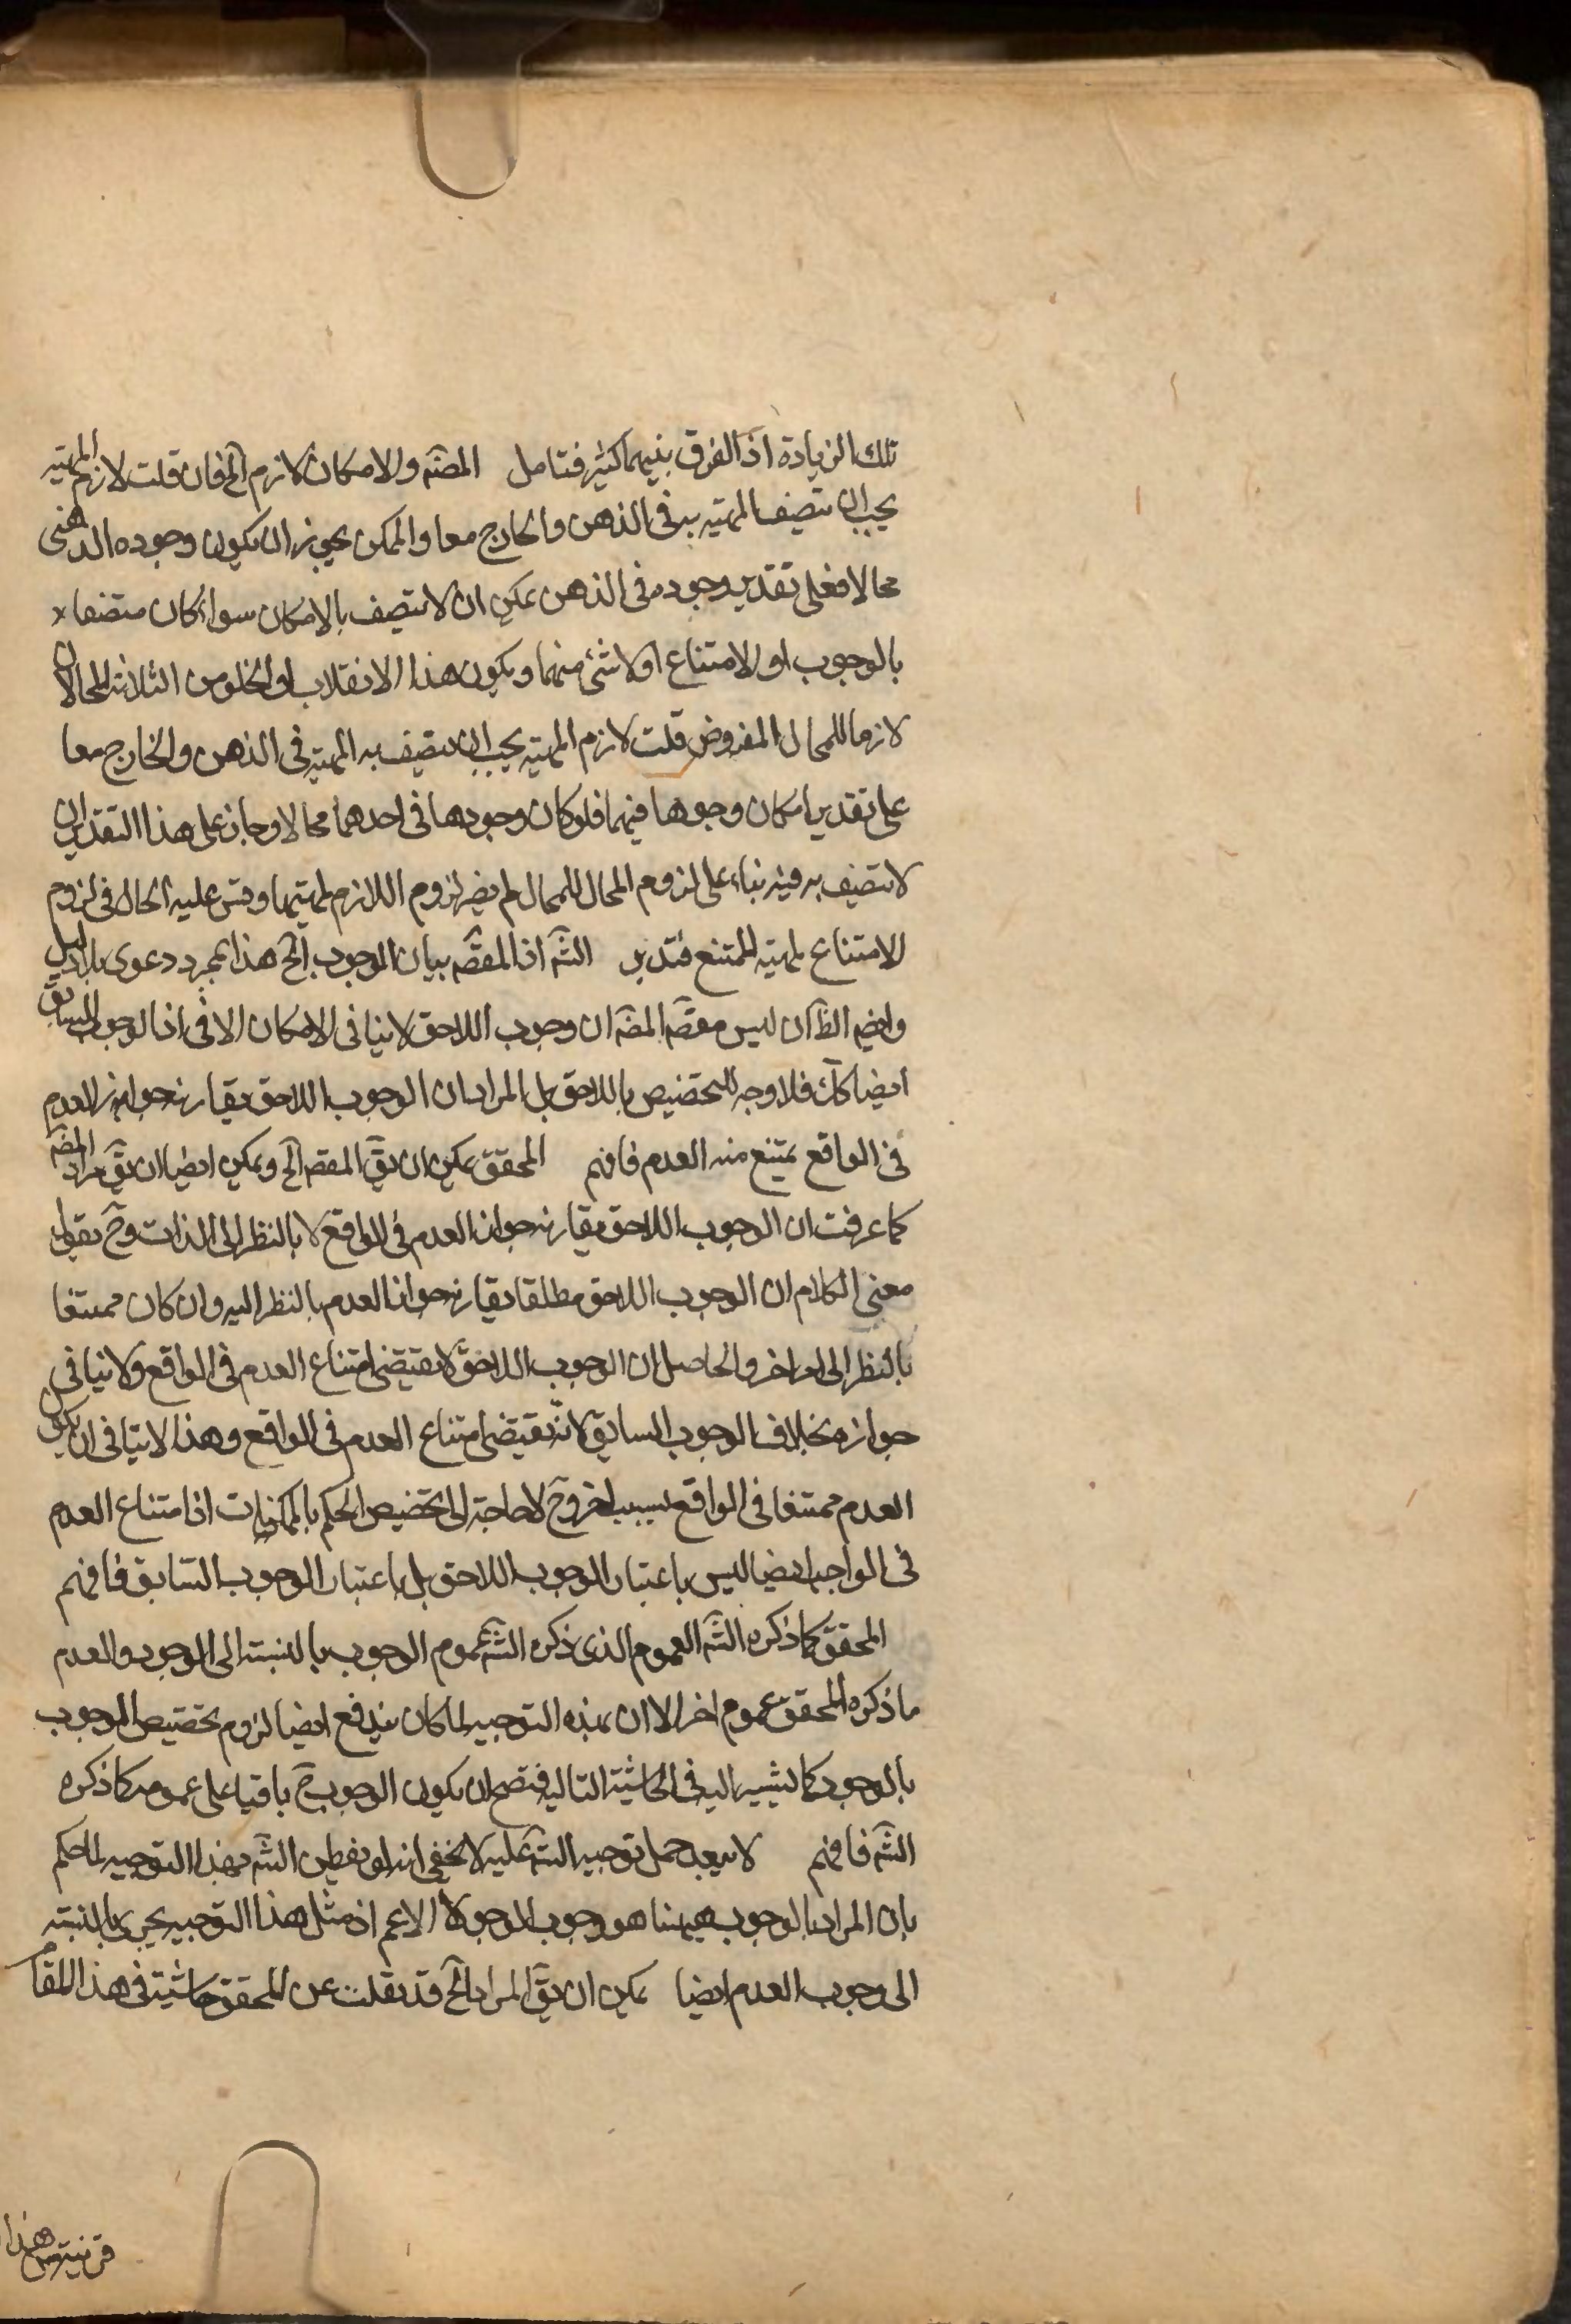 تلك الزيادة اذ الفرق بينهما كثير فتامل المصَ والامكان لازم الخ فان قلت لازم المهية
يجب ان تتصف المهية به فى الذهن والخارج معا والممكن يجوز ان يكون وجوده الذهنى
محالا فعلى تقدير وجوده فى الذهن يمكن ان لا يتصف بالامكان سواء كان متصفا
بالوجوب او الامتناع او لا شئ منهما ويكون هذا الانقلاب او الخلو من الثلاثة المحالان
لازما للمحال المفروض قلت لازم المهية يجب ان يتصف به المهية فى الذهن والخارج معا
على تقدير امكان وجودها فيهما فلو كان وجودها فى احدهما محالا وجاز على هذا التقدير ان
لا تتصف به فيه بناء على لزوم المحال للمحال لم يضر لزوم اللازم لمهيتها وقس عليه الحال فى لزوم
الامتناع لمهية الممتنع فتدبر الشَ اذ المقصَ بيان الوجوب الخ هذا مجرد دعوى بلا دليل
وايضا الظَ ان ليس مقصَ المصَ ان وجوب اللاحق لا ينافى الامكان الا فى اذ الوجوب السابق
ايضا كك فلا وجه للتخصيص باللاحق بل المراد ان الوجوب اللاحق يقارنه جواز العدم
فى الواقع يمتنع منه العدم فافهم المحقق يمكن ان يقَ المقصَ الخ ويمكن ايضا ان يقَ مراد المصَ
كما عرفت ان الوجوب اللاحق يقارنه جواز العدم فى الواقع لا بالنظر الى الذات وحَ نقول
معنى الكلام ان الوجوب اللاحق مطلقا يقارنه جواز العدم بالنظر اليه وان كان ممتنعا
بالنظر الى امر اخر والحاصل ان الوجوب اللاحق لا يقتضى امتناع العدم فى الواقع ولا ينافى
جوازه بخلاف الوجوب السابق لانه يقتضى امتناع العدم فى الواقع وهذا لا ينافى ان يكون
العدم ممتنعا فى الواقع بسبب اخر وحَ لا حاجة الى تخصيص الحكم بالممكنات اذ امتناع العدم
فى الواجب ايضا ليس باعتبار الوجوب اللاحق بل باعتبار الوجوب السابق فافهم
المحقق كما ذكره الشَ العموم الذى ذكره الشَ عموم الوجوب بالنسبة الى الوجود والعدم
ما ذكره المحقق عموم اخر الا ان بهذه التوجيه لما كان يندفع ايضا لزوم تخصيص الوجوب
بالوجود كما يشير اليه فى الحاشية التالية فتصح ان يكون الوجوب حَ باقيا على عمومه كما ذكره
الشَ فافهم لا يبعد حمل توجيه الشَ عليه لا يخفى انه لو يفطن الشَ بهذا التوجيه لما حكم
بان المراد بالوجوب ههنا هو وجوب الوجود لا الاعم اذ مثل هذا التوجيه يجرى بالنسبة
الى وجوب العدم ايضا يمكن ان يقَ المراد الخ قد نقلت عن المحقق حاشية فى هذا المقام
قرينة هذا